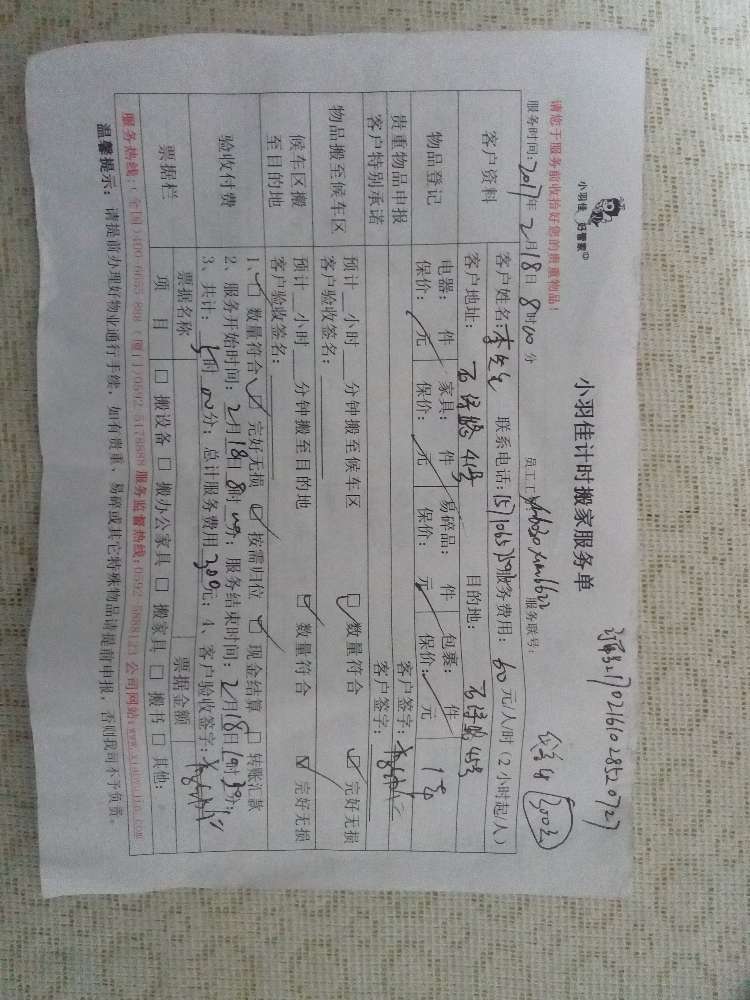 小羽佳 好管家
小羽佳计时搬家服务单
请您于服务前收拾好您的贵重物品!
服务时间:2017年2月18日8时00分 员工工号: 服务联号:
线下付 300元
客户资料 客户姓名:李先生 联系电话: 服务费用:60元/人/时(2小时起/人)
客户地址: 41号 目的地: 45号
物品登记 电器: 件 家具: 件 易碎品: 件 包裹: 件 1车
保价: 元 保价: 元 保价: 元 保价: 元
贵重物品申报 客户签字:
客户特别承诺 客户签字:
物品搬至候车区 预计__小时__分钟搬至候车区 数量符合 完好无损
客户验收签名:
候车区搬至目的地 预计__小时__分钟搬至目的地 数量符合 完好无损
客户验收签名:
验收付费 1、 数量符合 完好无损 按需归位 现金结算 转账汇款
2、服务开始时间:2月18日8时00分;服务结束时间:2月18日 时30分;
3、共计: 时00分;总计服务费用300元;4、客户验收签字:
票据栏 票据名称 票据金额
项目 搬设备 搬办公家具 搬家具 搬书 其他:
服务热线:(全国)400-6055-808 (厦门)0592-5478888 服务监督热线:0592-5888123 公司网站:www.xiaoyujia.com
温馨提示:请提前办理好物业通行手续,如有贵重、易碎或其它特殊物品请提前申报,否则我司不予负责。